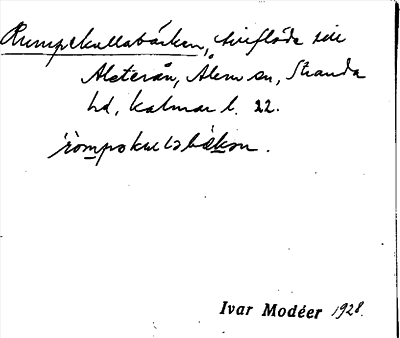 Rumpekullabäcken, tillflöde till
Alsterån, Ålem sn, Stranda
hd, Kalmar l. 22.
Ivar Modéer 1928.